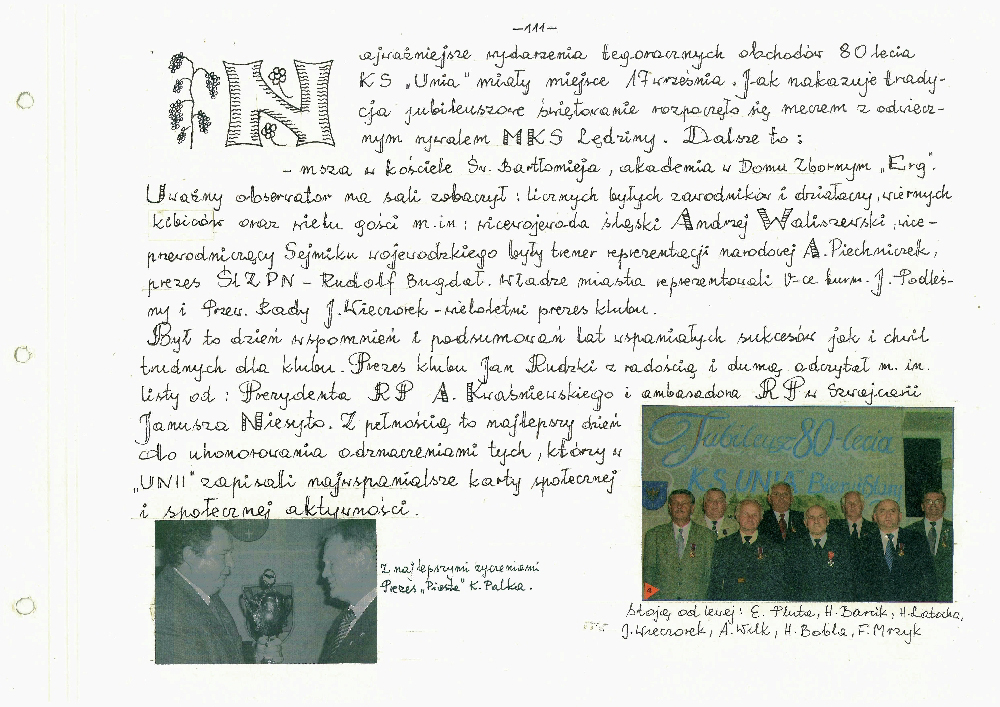 -111-
Najważniejsze wydarzenia tegorocznych obchodów 80 lecia
KS „Unia" miały miejsce 17 września. Jak nakazuje trady-
cja jubileuszowe świętowanie rozpoczęło się meczem z odwiecz-
nym rywalem MKS Lędziny. Dalsze to:
- msza w kościele Św. Bartłomieja, akademia w Domu Zbornym „Erg".
Uważny obserwator na sali zobaczył: licznych byłych zawodników i działaczy, wiernych
kibiców oraz wielu gości m.in: vicewojewoda śląski Andrzej Waliszewski, vice-
przewodniczący Sejmiku wojewodzkiego były trener reprezentacji narodowej A. Piechniczek,
prezes ŚlZPN - Rudolf Bugdał. Władze miasta reprezentowali V-ce burm. J. Podleś-
ny i Przew. Rady J. Wieczorek - wieloletni prezes klubu.
Był to dzień wspomnień i podsumowań lat wspaniałych sukcesów jak i chwil
trudnych dla klubu. Prezes klubu Jan Rudzki z radością i dumą odczytał m. in.
listy od: Prezydenta RP A. Kwaśniewskiego i ambasadora RP w Szwajcarii
Janusza Niesyto. Z pełnością to najlepszy dzień
do uhonorowania odznaczeniami tych, którzy w
„UNII" zapisali najwspanialsze karty społecznej
i społecznej aktywności.
Jubileusz 80-lecia
KS „UNIA" Bieruń Stary
Z najlepszymi życzeniami
Prezes „Piasta" K. Pałka.
4
Stoją od lewej: E. Pluta, H. Barcik, H. Latocha,
J. Wieczorek, A. Wilk, H. Bobla, F. Mrzyk